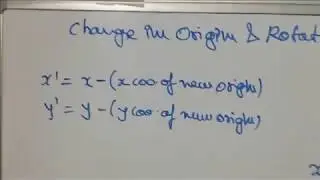 Change in Origin & Rotat
x' = x - (x coo. of new origin)
y' = y - (y coo. of new origin)